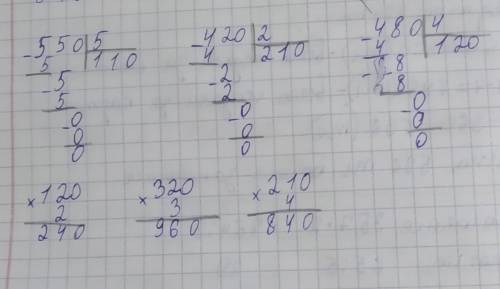 -550|5
5 |110
-5
5
-0
0
0
-420|2
4 |210
-2
2
-0
0
0
-480|4
4 |120
-8
8
-0
0
0
×120
2
240
×320
3
960
×210
4
840